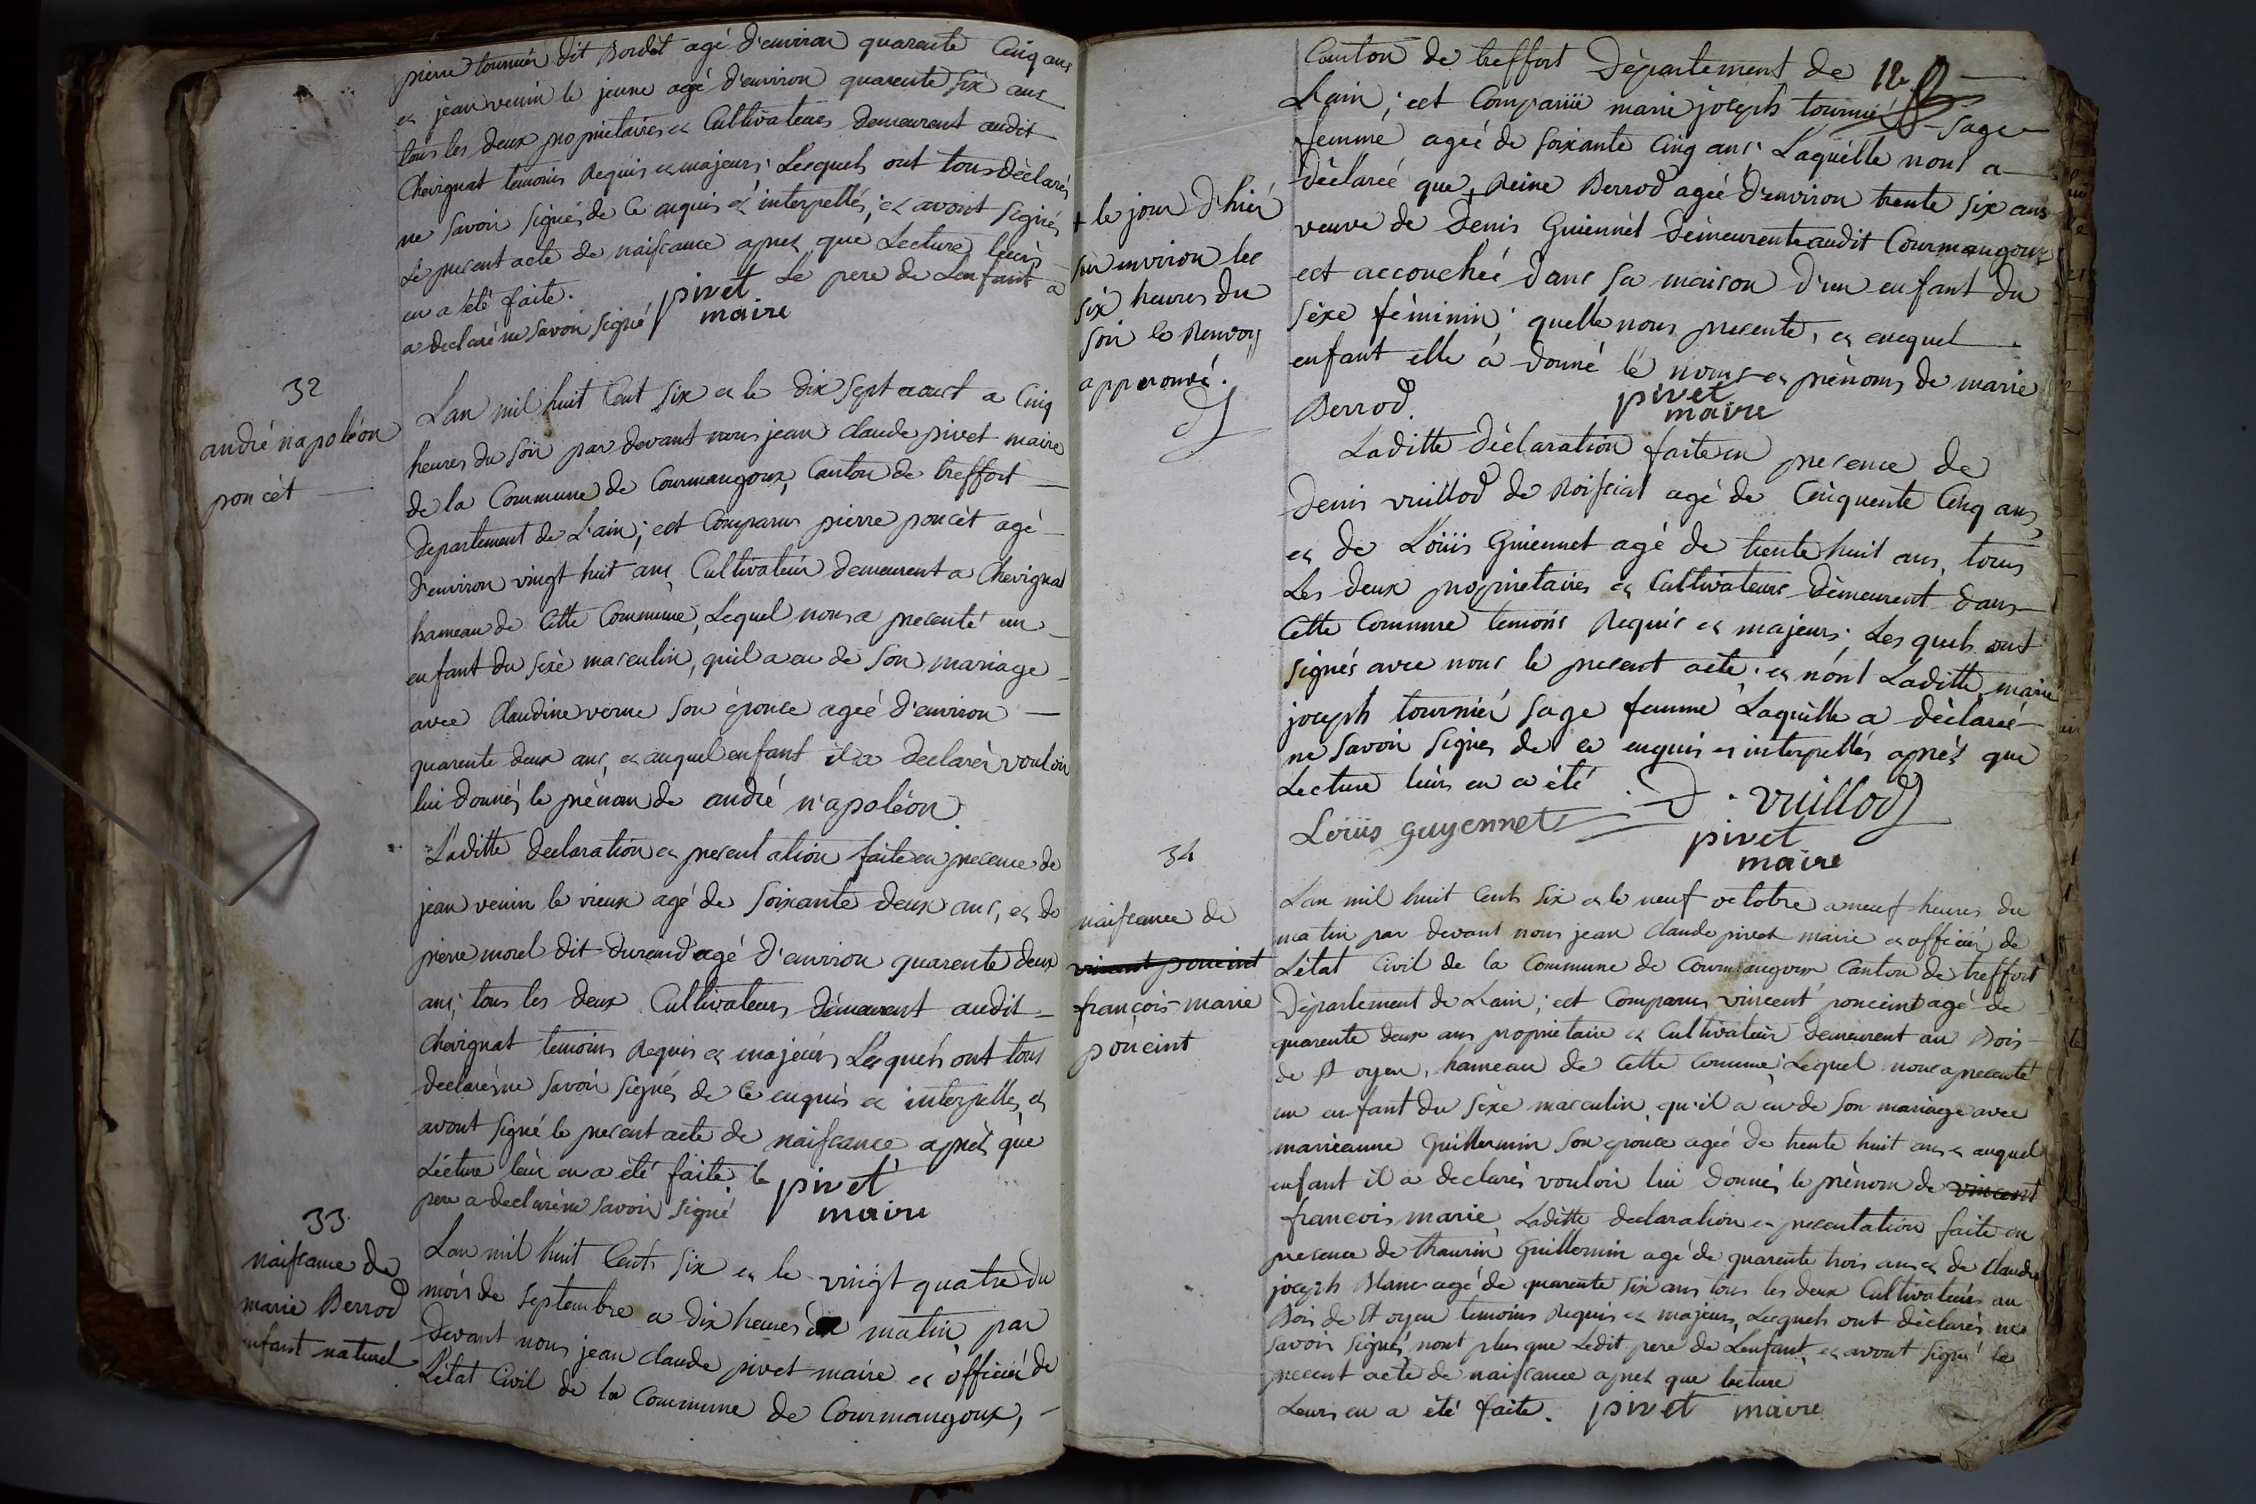 pierre tournier dit Bordèt agé d'environ quarente Cinq ans
et jean venin le jeune agé d'environ quarente six ans
tous les deux propriétaires et Cultivateurs demeurent audit
Chevignat temoins Requis et majeurs; Lesquels ont tous dèclarés
ne savoir signés de Ce enquis et interpellés; et avont signés
Le present acte de naissance aprés que Lecture leurs
en a été faite.
pivet
maire
Le pere de Lenfant a
a declaré ne savoir signé
32
andré napoléon
poncèt
Lan mil huit Cent six et le dix sept aoust a Cinq
heures du soir par devant nous jean claude pivet maire
de la Commune de Courmangoux, Canton de treffort
departement de L'ain; est Comparus pierre poncèt agé
d'environ vingt huit ans Cultivateur demeurent a Chevignat
hameau de Cette Commune, Lequel nous a presenté un
enfant du sexe masculin, qu'il a eu de son mariage
avec Claudine verne son épouse ageé d'environ
quarente deux ans, et auquel enfant il a declarés vouloir
lui donnés le prénom de andré n'apoléon.
Laditte declaration et presentation faite en presence de
jean venin le vieux agé de soixante deux ans, et de
pierre morel dit durand agé d'environ quarente deux
ans; tous les deux Cultivateurs démeurent audit
Chevignat temoins Requis et majeurs Lesquels ont tous
declarés ne savoir signés de Ce enquis et interpellés, et
avont signé le present acte de naissance aprés que
Lécture leur en a été faite. le
pere a declaré ne savoir signé
pivet
maire
33
naissance de
marie Berrod
enfant naturel
Lan mil huit Cents six et le vingt quatre du
mois de septembre a dix heures du matin par
Devant nous jean claude pivet maire et officié de
L'état Civil de la Commune de Courmangoux,
12e
Canton de treffort Département de
Lain; est Comparüe marie joseph tournié sage
femme ageé de soixante Cinq ans; Laquélle nous a
déclareé que + Reine Berrod ageé d'environ trente six ans
veuve de Denis Guiennèt demeurente audit Courmangoux
est accoucheé dans sa maison d'un enfant du
sèxe féminin; quelle nous presente, et auquel
enfant elle a donné le noms et prènoms de marie
Berrod.
pivet
maire
+ le jour d'hier
sur environ les
six heures du
soir le Renvoy
approuvé.
Laditte déclaration faite en presence de
Denis vuillod de Roissiat agé de Cinquente Cinq ans,
et de Loüis Guiennet agé de trente huit ans, tous
Les deux propriétaires et Cultivateurs démeurent dans
Cette Commune temoins Requis et majeurs; Lesquels ont
signés avec nous le present acte; et nónt Laditte marie
joseph tournier sage femme Laquélle a déclareé
ne savoir signer de ce enquis et interpellés aprés que
Lecture leurs en a été
D. vuillod
Loüis guyennet
pivet
maire
34
naissance de
vincent poncint
françois-marie
ponçint
Lan mil huit Cents six et le neuf octobre a neuf heures du
matin par devant nous jean claude pivet maire et officier de
L'état Civil de la Commune de Courmangoux Canton de treffort
Département de Lain; est Comparus vincent ponceint agé de
quarente deux ans propriétaire et Cultivateur demeurent au Bois
de St oyen, hameau de Cette Commune; Lequel nous a presenté
un enfant du sèxe masculin, qu'il a eu de son mariage avec
marieanne Guillermin son épouce ageé de trente huit ans et auquel
enfant il a declarés vouloir lui donnés le prénom de vincent
francois marie, Laditte declaration et presentation faite en
presence de thaurin Guillermin agé de quarente trois ans et de Claude
joseph Blanc agé de quarente six ans tous les deux Cultivateurs au
Bois de St oyen temoins Requis et majeurs, Lesquels ont dèclarés ne
savoir signés, nont plus que Ledit pere de Lenfant et avont signé le
present acte de naissance aprés que lecture
Leurs en a été faite. pivet maire